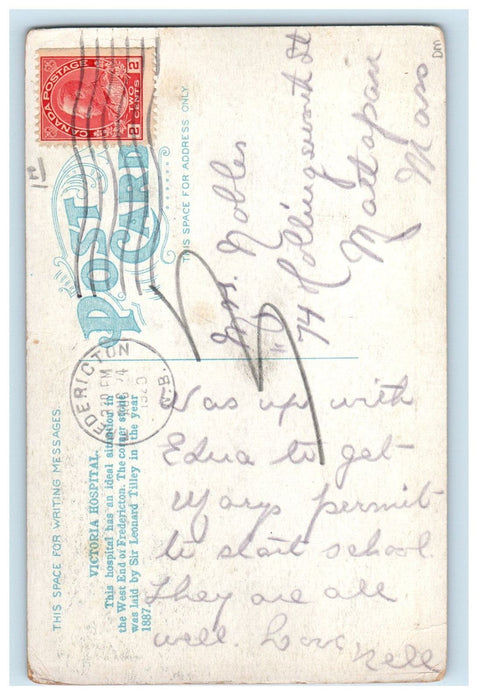 CANADA POSTAGE
2 TWO CENTS 2
POST CARD
THIS SPACE FOR WRITING MESSAGES
THIS SPACE FOR ADDRESS ONLY
VICTORIA HOSPITAL,
This hospital has an ideal situation in
the West End of Fredericton. The corner stone
was laid by Sir Leonard Tilley in the year
1887.
FREDERICTON
PM
N.B.
DM
Mrs. Nobles
74 Hollingsworth St
Mattapan
Mass
Was up with
Edna to get
Marys permit
to start school.
They are all
well. Love
Nell